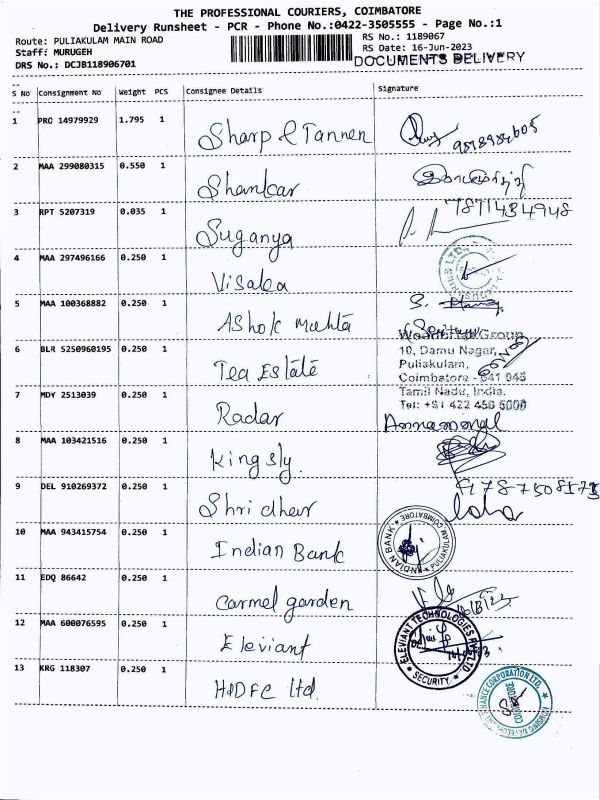 THE PROFESSIONAL COURIERS, COIMBATORE
Delivery Runsheet - PCR - Phone No.:0422-3505555 - Page No.:1
Route: PULIAKULAM MAIN ROAD
RS No.: 1189067
Staff: MURUGEH
RS Date: 16-Jun-2023
DRS No.: DCJB118906701
DOCUMENTS DELIVERY
S No Consignment No Weight PCS Consignee Details Signature
1 PRO 14979929 1.795 1 Sharp & Tannen
2 MAA 299080315 0.550 1 Shankar
3 RPT 5207319 0.035 1 Suganya
4 MAA 297496166 0.250 1 Visaka
5 MAA 100368882 0.250 1 Ashok Muhta
6 BLR 5250960195 0.250 1 Tea Estate
Group
10, Damu Nagar,
Puliakulam,
Coimbatore - 641 045
Tamil Nadu, India.
Tel: +91 422 450 5000
7 MDY 2513039 0.250 1 Radar
8 MAA 103421516 0.250 1 Kingsly.
9 DEL 910269372 0.250 1 Shridhar
10 MAA 943415754 0.250 1 Indian Bank
INDIAN BANK * PULIAKULAM, COIMBATORE
11 EDQ 86642 0.250 1 Carmel garden
12 MAA 600076595 0.250 1 Eleviant
ELEVIANT TECHNOLOGIES PVT LTD
* SECURITY *
13 KRG 118307 0.250 1 HDFC Ltd.
HOUSING DEVELOPMENT FINANCE CORPORATION LTD.
COIMBATORE